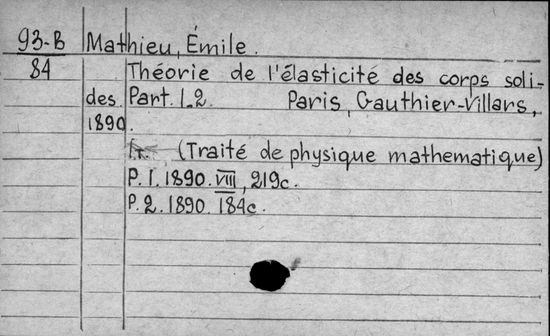 93-B Mathieu, Émile.
84 Théorie de l'élasticité des corps soli-
des. Part. 1-2. Paris, Gauthier-Villars,
1890.
(Traité de physique mathematique)
P. 1. 1890. VIII, 219c.
P. 2. 1890. 184c.